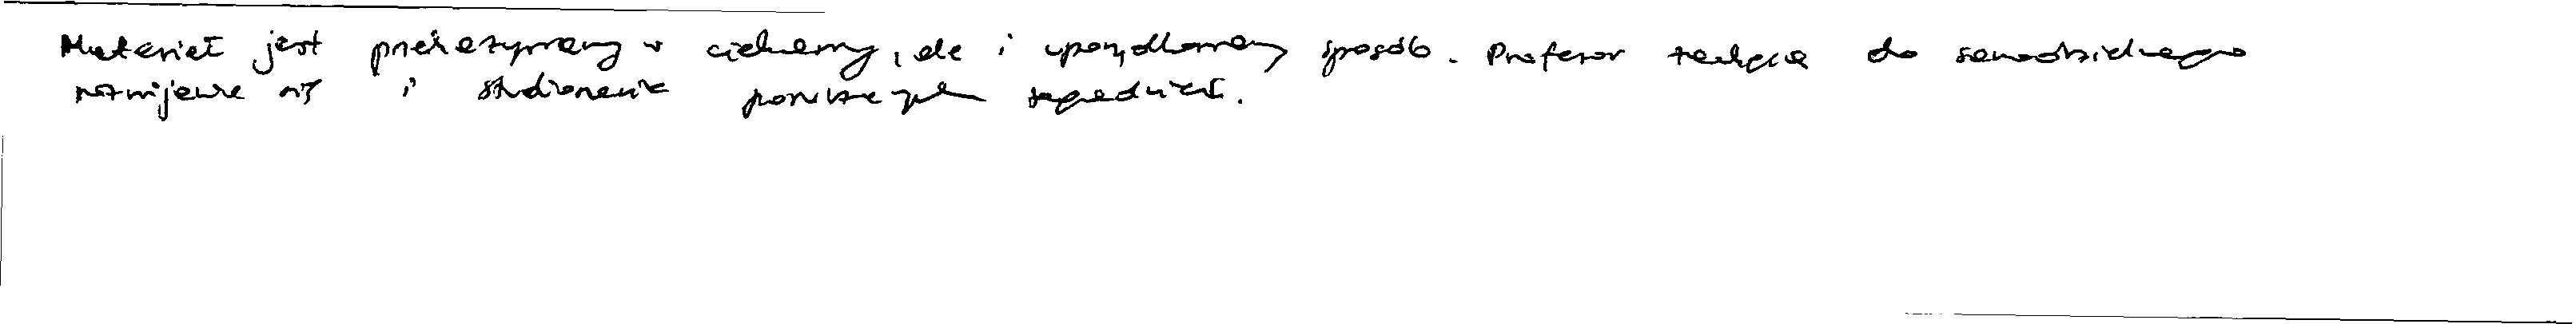 Materiał jest przekazywany w ciekawy, ale i uporządkowany sposób. Profesor zachęca do samodzielnego
rozwijania się i studiowania poruszanych zagadnień.